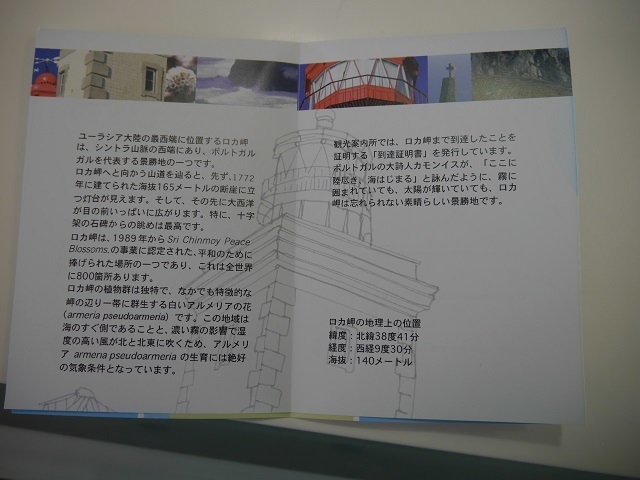 ユーラシア大陸の最西端に位置するロカ岬
は、シントラ山脈の西端にあり、ポルトガル
ガルを代表する景勝地の一つです。
ロカ岬へと向かう山道を辿ると、先ず、1772
年に建てられた海抜165メートルの断崖に立
つ灯台が見えます。そして、その先に大西洋
が目の前いっぱいに広がります。特に、十字
架の石碑からの眺めは最高です。
ロカ岬は、1989年から Sri Chinmoy Peace
Blossoms.の事業に認定された、平和のために
捧げられた場所の一つであり、これは全世界
に800箇所あります。
ロカ岬の植物群は独特で、なかでも特徴的な
岬の辺り一帯に群生する白いアルメリアの花
(armeria pseudoarmeria) です。この地域は
海のすぐ側であることと、濃い霧の影響で湿
度の高い風が北と北東に吹くため、アルメリ
ア armeria pseudoarmeria の生育には絶好
の気象条件となっています。
観光案内所では、ロカ岬まで到達したことを
証明する「到達証明書」を発行しています。
ポルトガルの大詩人カモンイスが、「ここに
陸尽き、海はじまる」と詠んだように、霧に
囲まれていても、太陽が輝いていても、ロカ
岬は忘れられない素晴らしい景勝地です。
ロカ岬の地理上の位置
緯度：北緯38度41分
経度：西経9度30分
海抜：140メートル